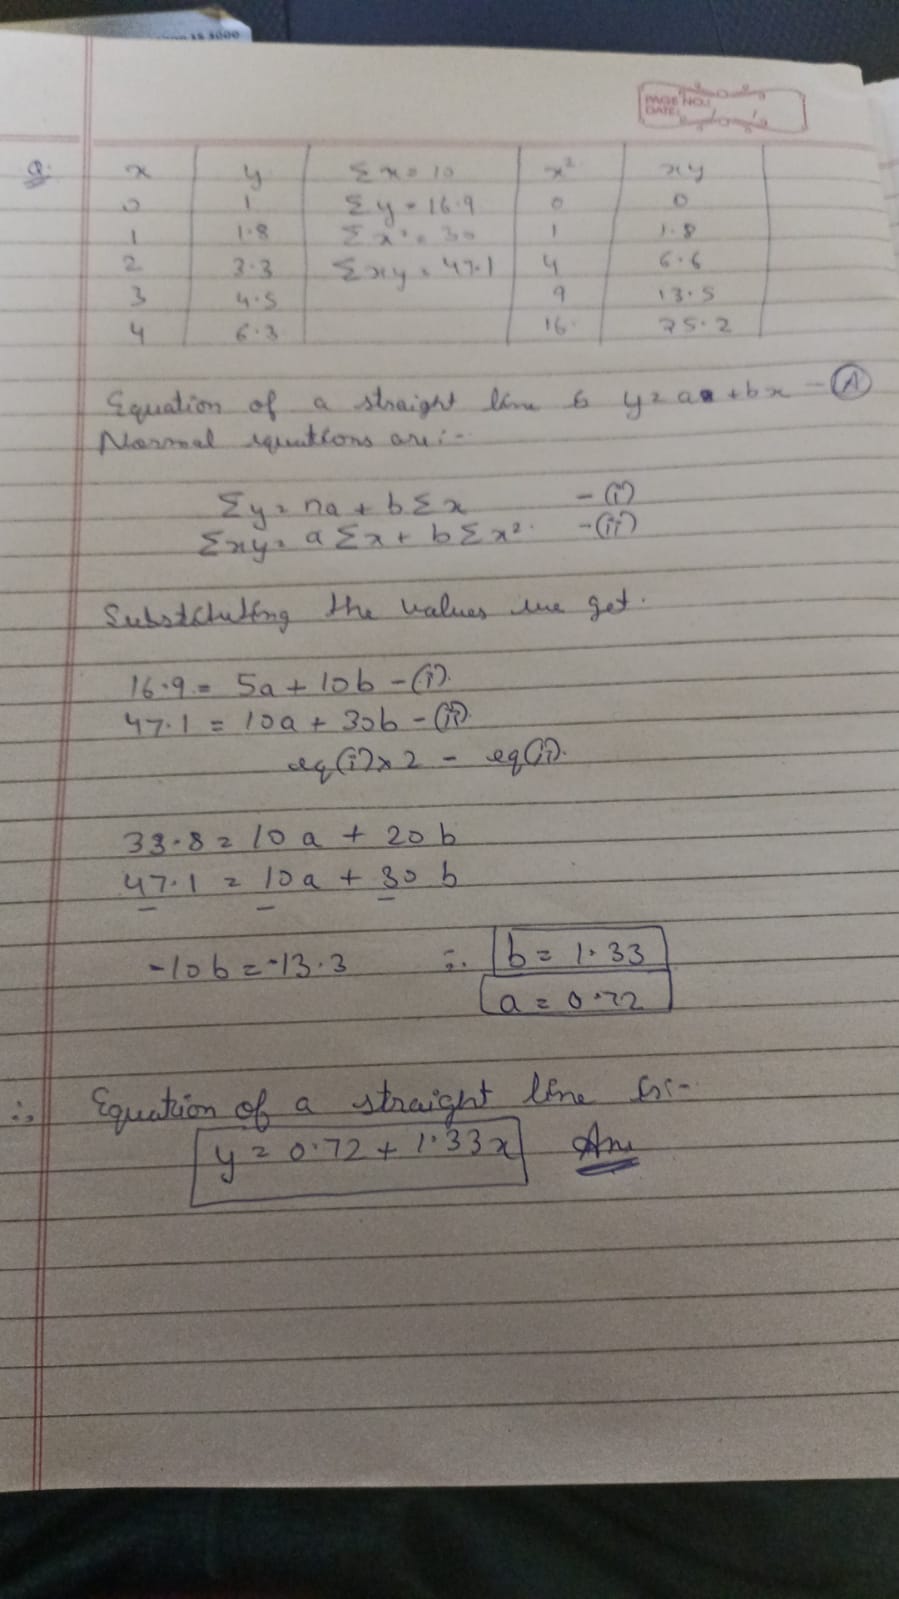 IS 3000
PAGE NO.:
DATE:
Q. x y Σx = 10 x² xy
0 1 Σy = 16.9 0 0
1 1.8 Σx² = 30 1 1.8
2 3.3 Σxy = 47.1 4 6.6
3 4.5 9 13.5
4 6.3 16 25.2
Equation of a straight line is y = a + bx - (A)
Normal equations are:-
Σy = na + bΣx - (i)
Σxy = aΣx + bΣx² - (ii)
Substituting the values we get.
16.9 = 5a + 10b - (i).
47.1 = 10a + 30b - (ii).
eq (i) x 2 - eq (ii).
33.8 = 10a + 20b
47.1 = 10a + 30b
- - -
-10b = -13.3 ∴ b = 1.33
a = 0.72
∴ Equation of a straight line is:-
y = 0.72 + 1.33x Ans